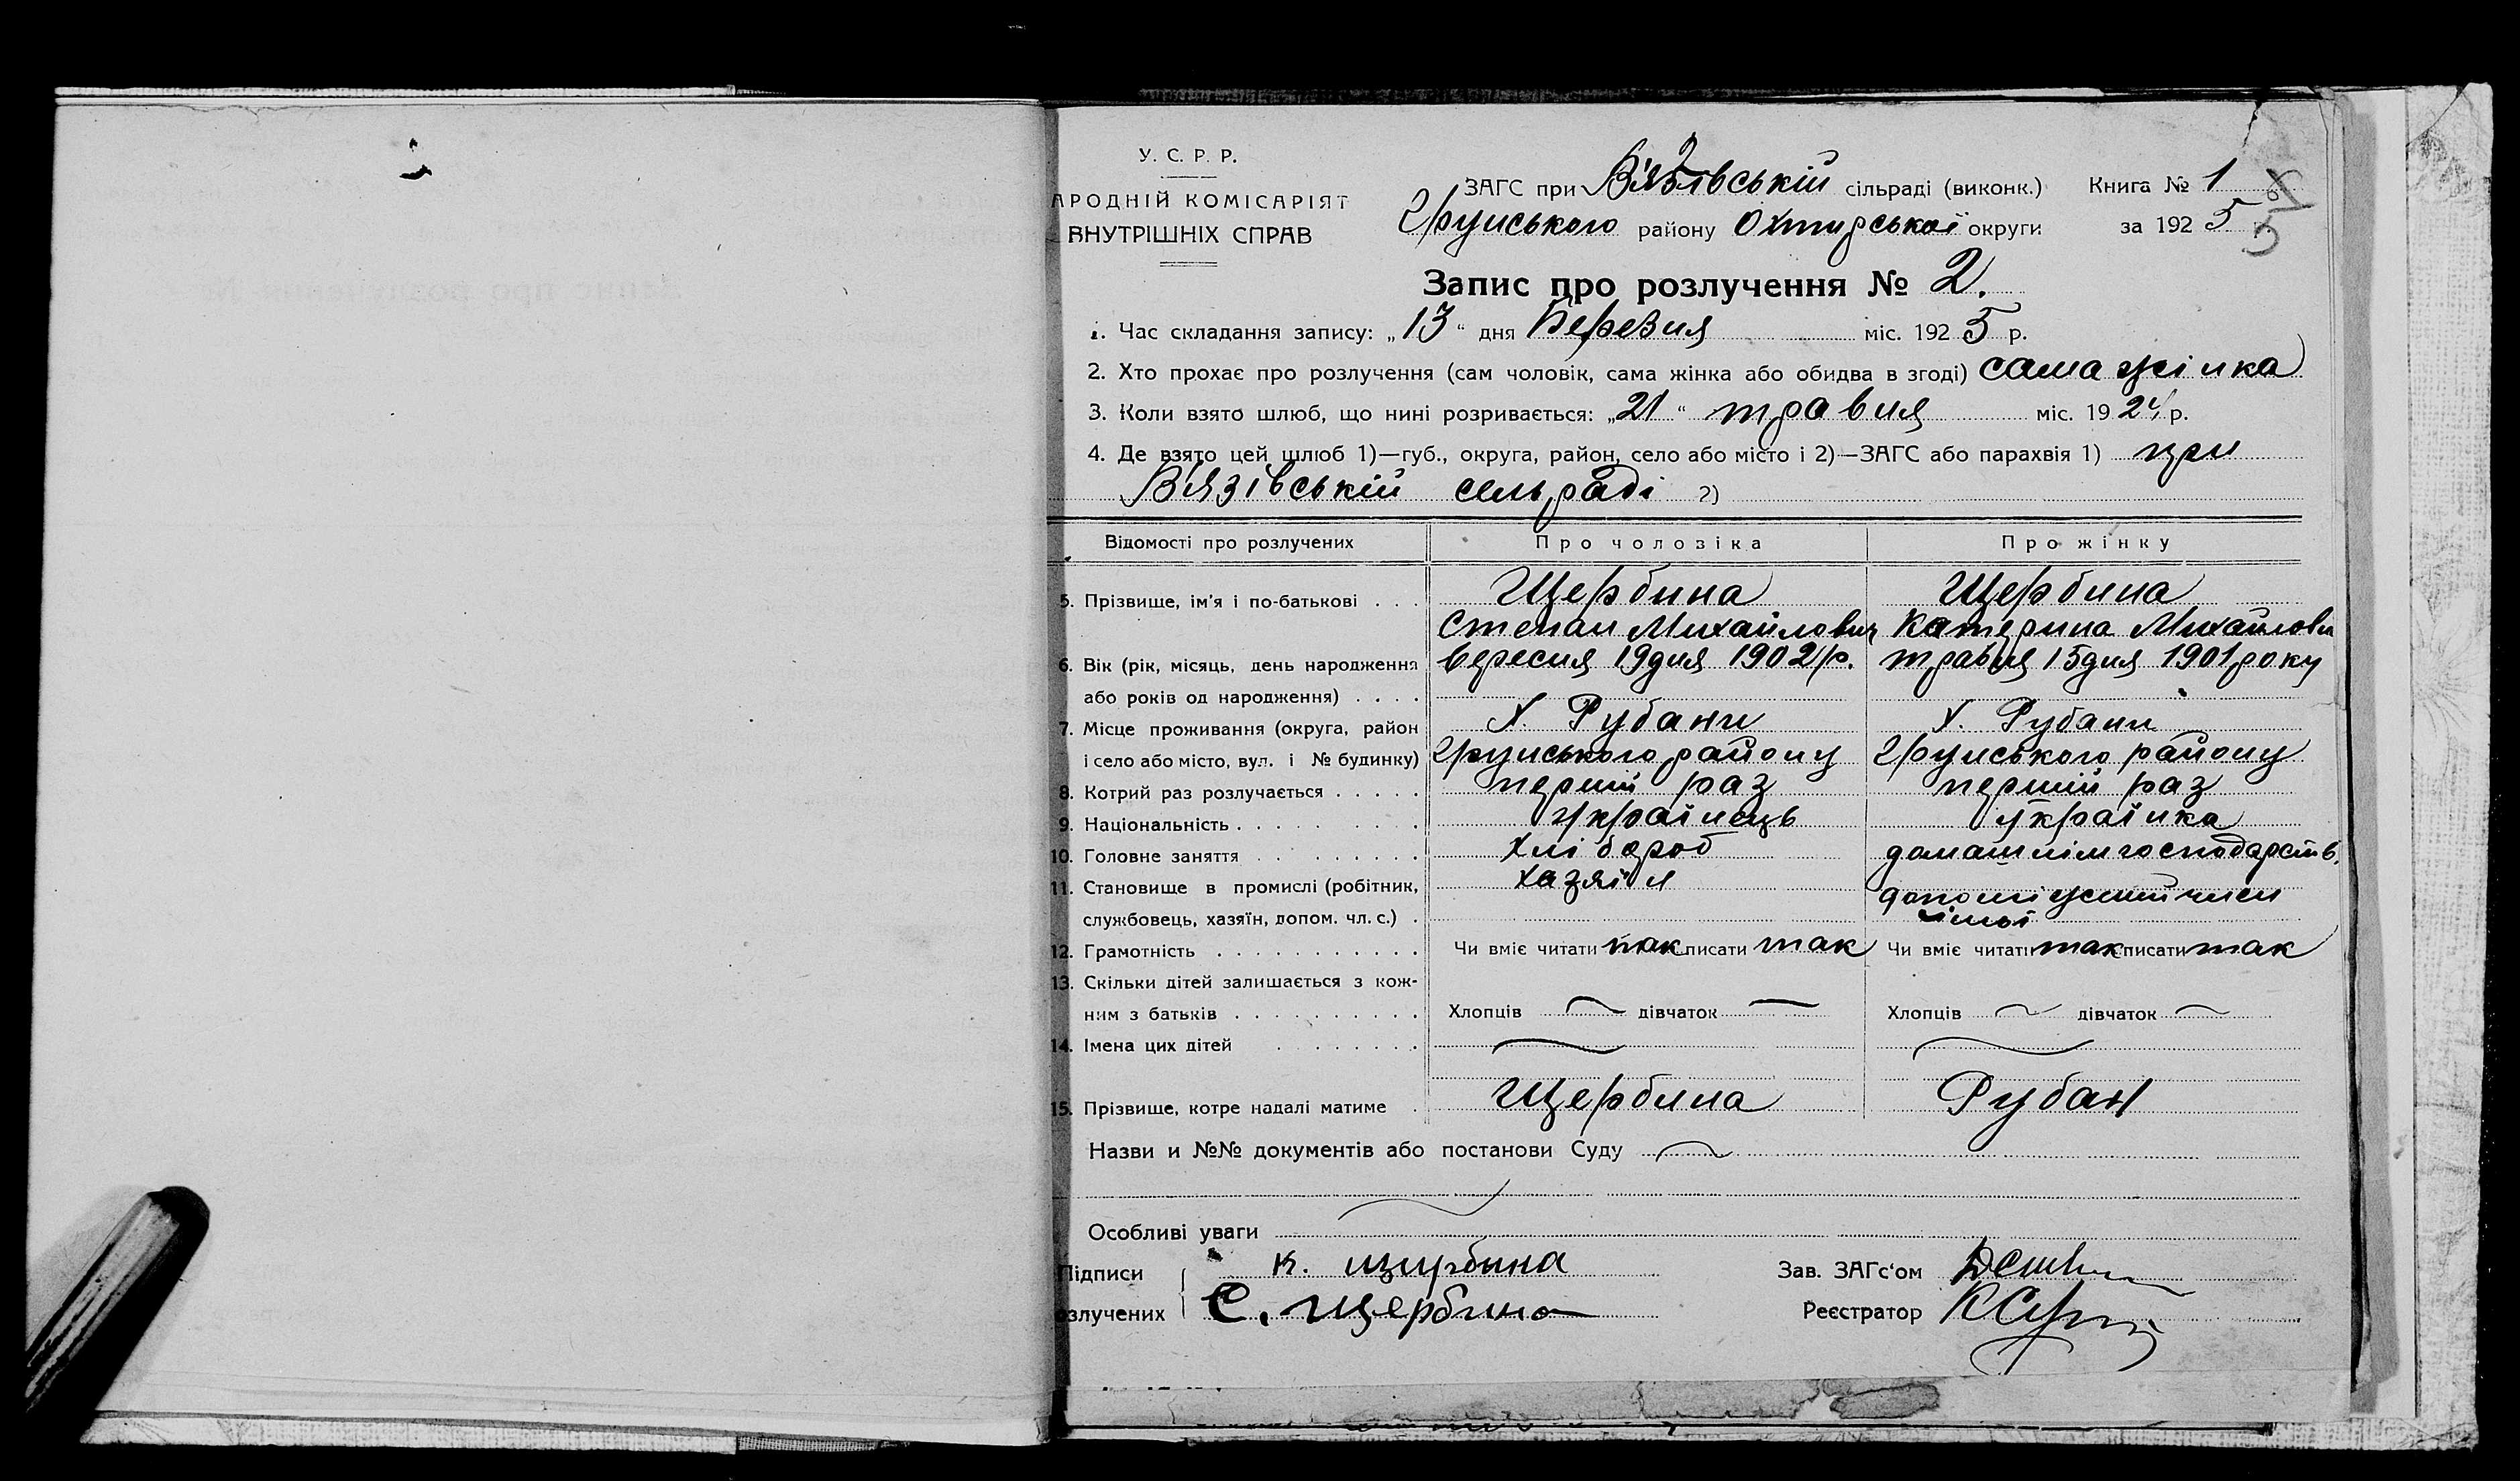 У. С. Р. Р.
АРОДНІЙ КОМІСАРІЯТ
ВНУТРІШНІХ СПРАВ
ЗАГС при В'язівській сільраді (виконк.) Книга № 1
Грунського району Охтирської округи за 1925 р.
5
Запис про розлучення № 2.
1. Час складання запису: „13“ дня Березня міс. 1925 р.
2. Хто прохає про розлучення (сам чоловік, сама жінка або обидва в згоді) сама жінка
3. Коли взято шлюб, що нині розривається: „21“ травня міс. 1924 р.
4. Де взято цей шлюб 1)—губ., округа, район, село або місто і 2)—ЗАГС або парахвія 1) при
В'язівській сельраді 2)
Відомості про розлучених Про чоловіка Про жінку
5. Прізвище, ім'я і по-батькові . . . Щербина Щербина
Степан Михайлович Катерина Михайловн
6. Вік (рік, місяць, день народження вересня 19 дня 1902 р. травня 15 дня 1901 року
або років од народження) . . . .
7. Місце проживання (округа, район Х. Рубани Х. Рубани
і село або місто, вул. і № будинку) Грунського району Грунського району
8. Котрий раз розлучається . . . . . перший раз перший раз
9. Національність . . . . . . . українець українка
10. Головне заняття . . . . . . . . . хлібороб домашнім господарств.
11. Становище в промислі (робітник, хазяїн допоміжний член
службовець, хазяїн, допом. чл. с.) . сімьї
12. Грамотність . . . . . . . . . . . Чи вміє читати так писати так Чи вміє читати так писати так
13. Скільки дітей залишається з кож-
ним з батьків . . . . . . . . . . Хлопців — дівчаток — Хлопців — дівчаток —
14. Імена цих дітей . . . . . . . — —
15. Прізвище, котре надалі матиме . Щербина Рубан
Назви и №№ документів або постанови Суду —
Особливі уваги
Підписи К. щирбина Зав. ЗАГс'ом
озлучених С. Щербина Реєстратор